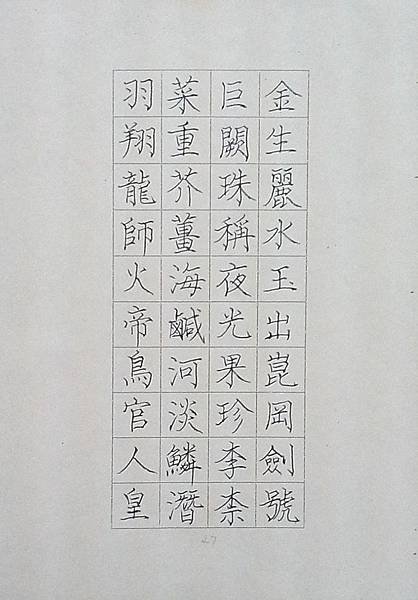 金生麗水玉出崑岡劍號
巨闕珠稱夜光果珍李柰
菜重芥薑海鹹河淡鱗潛
羽翔龍師火帝鳥官人皇
27